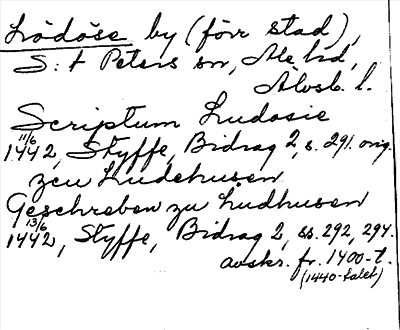 Lödöse by (förr stad),
S:t Peters sn, Ale hd,
Älvsb. l.
Scriptum Ludosie
11/6 1442, Styffe, Bidrag 2, s. 291. orig.
zcu Ludehusen
Geschreben zu Ludhusen
13/6 1442, Styffe, Bidrag 2, ss. 292, 294.
avskr. fr. 1400-t.
(1440-talet)